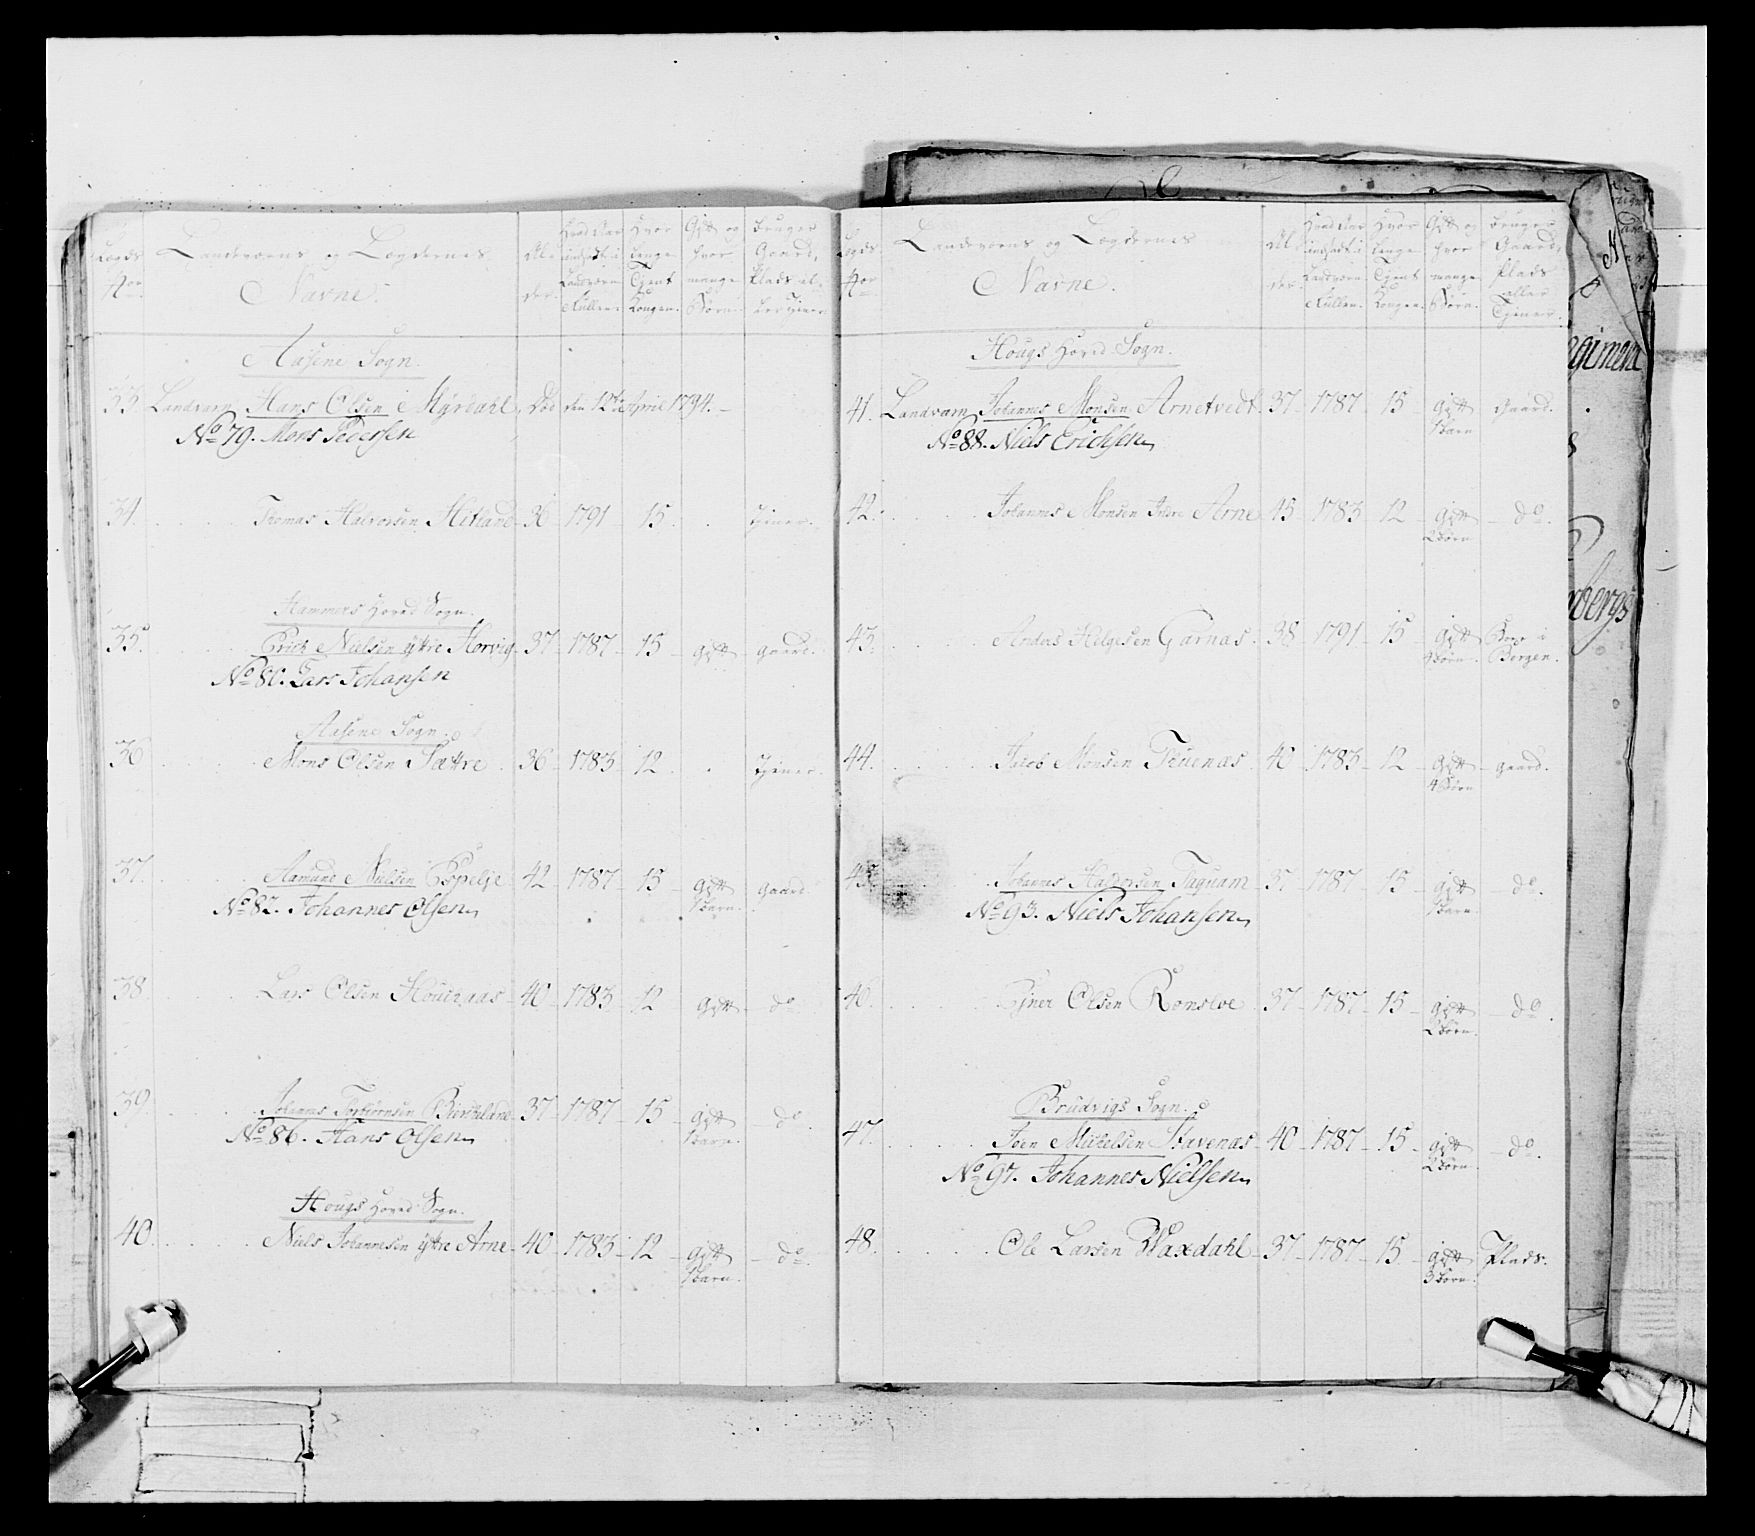 Lægds No
Landeværns og Lægdernes
Navne.
Al-
der.
Hvad Aar
indsadt i
Landeværn
Rullen.
Hvor
lenge
Tjent
Kongen.
Gift og
hvor
mange
Børn.
bruger
Gaard,
Plads el-
ler tjener
Aasene Sogn.
33. Landværn Hans Olsen Myrdahl, død den 12te April 1794.
No 79. Mons Pedersen
34. Thomas Halvorsen Hitland 36 1791 15 . tjener.
Hammers Hoved Sogn.
35. Erick Nielsen ÿttre Horvig 37 1787 15 gift gaard.
No 80. Lars Johansen
Aasene Sogn.
36 Mons Olsen Sættre 36 1783 12 . tjener.
37. Aamund Nielsen Espelje 42 1787 15 gift gaard.
1 barn.
No 82. Johannes Olsen
38. Lars Olsen Houchaas 40 1783 12 gift do
39. Johannes Torbiørnsen Birkeland 37 1787 15 gift do
1 barn.
No 86. Hans Olsen
Hougs Hoved Sogn.
40. Niels Johannesen ÿttre Arne 40 1783 12 gift do
1 barn.
Lægds No
Landeværns og Lægdernes
Navne.
Al-
der.
Hvad Aar
indsadt i
Landeværn
Rullen.
Hvor
lenge
Tjent
Kongen.
Gift og
hvor
mange
Børn.
bruger
Gaard,
Plads
eller
Tjener.
Hougs Hoved Sogn.
41. Landværn Johannes Monsen Arnetvedt 37 1787 15 gift Gaard.
1 barn
No 88. Niels Erichsen
42. Johannes Monsen Indre Arne 45 1783 12 gift do.
2 børn
43. Anders Helgesen Garnas 38 1791 15 gift Boer i
4 børn. Bergen.
44. Jacob Monsen Tuenas 40 1783 12 gift gaard.
4 børn
45. Johannes Halvorsen Taquam 37 1787 15 gift do.
1 barn.
No 93. Niels Johansen
46. Ejner Olsen Romsloe 37 1787 15 gift do.
2 børn.
Brudvigs Sogn.
47. Joen Mikelsen Stavenas 40 1787 15 gift do.
2 børn.
No 97. Johannes Nielsen
48. Ole Larsen Waxdahl 37 1787 15 gift Plads.
3 børn.